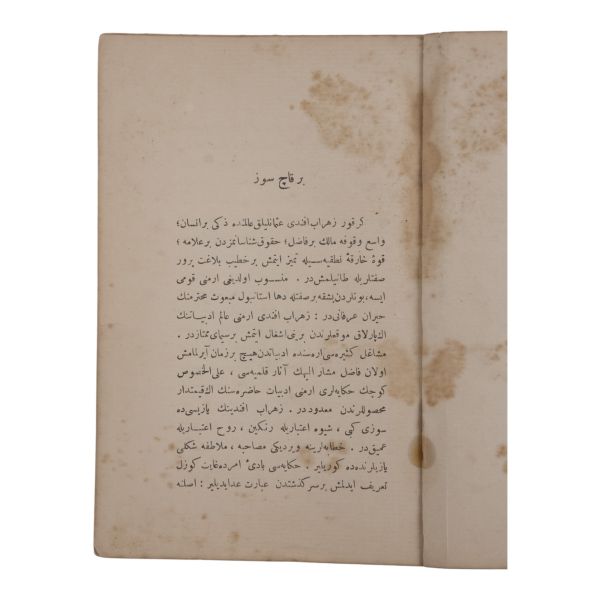 بر قاچ سوز
كرقور زهراب افندی عثمانلیلق عالمنده ذكی بر انسان؛
واسع وقوفه مالك بر فاضل؛ حقوق شناسانمزدن بر علامه؛
قوۀ خارقۀ نطقیه سیله تمیز ایتمش بر خطیب بلاغت پرور
صفتلریله طانیلمش در. منسوب اولدیغی ارمنی قومی
ایسه، بونلردن بشقه بر صفتله دها استانبول مبعوث محترمنك
حیران عرفانی در: زهراب افندی ارمنی عالم ادبیاتنك
اك پارلاق موقعلرندن برینی اشغال ایتمش بر سیمای ممتازدر.
مشاغل كثیره سی اره سنده ادبیاتدن هیچ بر زمان آیرلمامش
اولان فاضل مشار الیهك آثار قلمیه سی، علی الخصوص
كوچك حكایه لری ارمنی ادبیات حاضره سنك اك قیمتدار
محصوللرندن معدوددر. زهراب افندینك یازیسی ده
سوزی كبی، شیوه اعتباریله رنكین، روح اعتباریله
عمیق در. خطابه لرینه ویردیكی مصاحبه، ملاطفه شكلی
یازیلرنده ده كورولیر. حكایه سی بادئ امرده غایت كوزل
تعریف ایدلمش بر سركذشتدن عبارت عد ایدیلیر: اصلنه